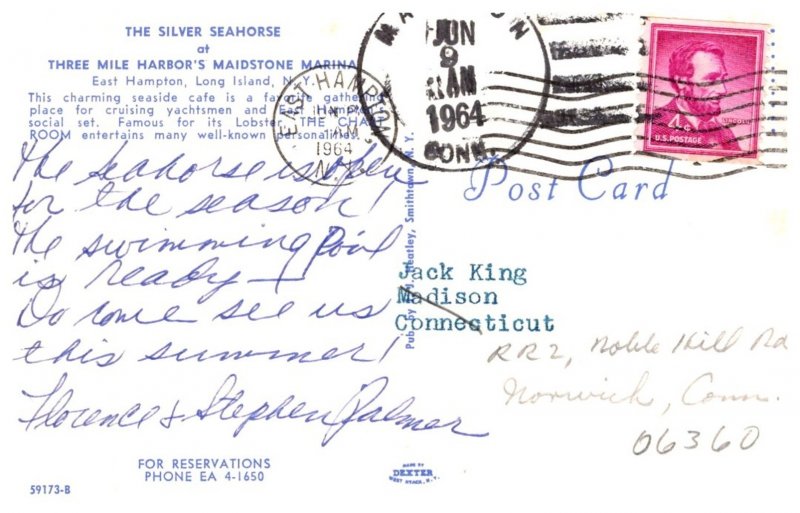 THE SILVER SEAHORSE
at
THREE MILE HARBOR'S MAIDSTONE MARINA
East Hampton, Long Island, N. Y.
This charming seaside cafe is a favorite gathering
place for cruising yachtsmen and East Hampton's
social set. Famous for its Lobster, THE CHART
ROOM entertains many well-known personalities.
The Seahorse is open
for the season!
The swimming pool
is ready —
Do come see us
this summer!
Florence & Stephen Palmer
FOR RESERVATIONS
PHONE EA 4-1650
59173-B
EAST HAMPTON
AM
1964
N.Y.
MADISON
JUN
9
AM
1964
CONN.
LINCOLN
4c
U.S. POSTAGE
Post Card
Heatley, Smithtown, N. Y.
Jack King
Madison
Connecticut
RR2, Noble Hill Rd
Norwich, Conn.
06360
MADE BY
DEXTER
WEST NYACK, N.Y.